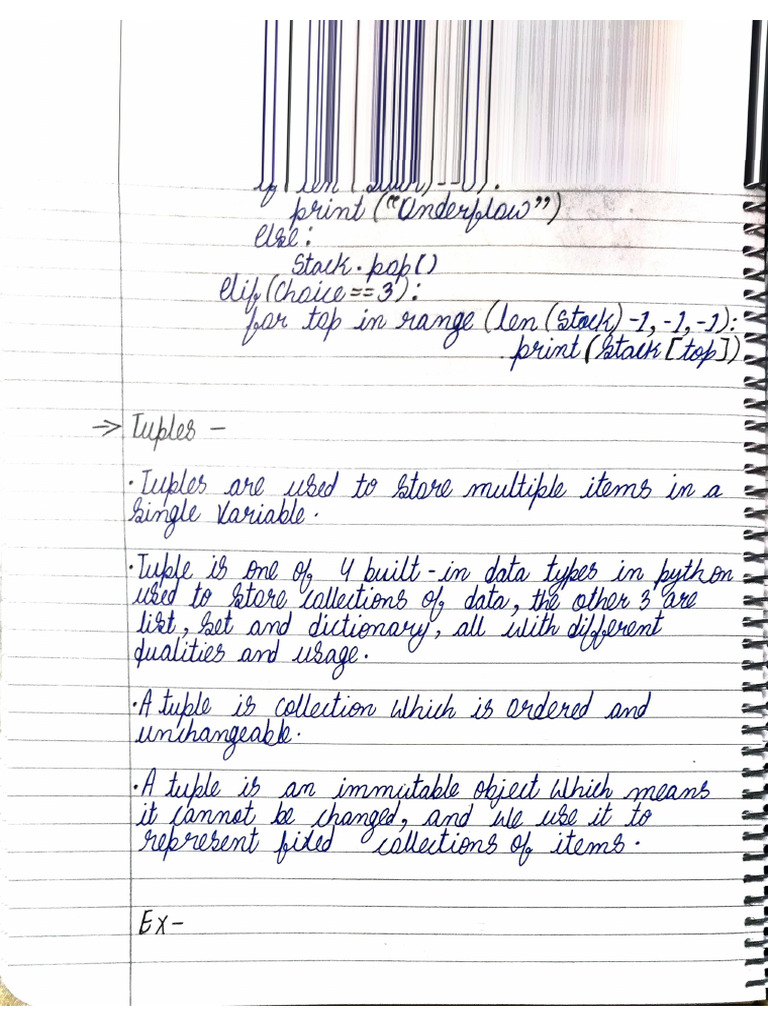 print ("Underflow")
else:
stack.pop()
elif (choice == 3):
for top in range (len (stack) -1, -1, -1):
print (stack [top])
→ Tuples -
· Tuples are used to store multiple items in a
single variable.
· Tuple is one of 4 built-in data types in python
used to store collections of data, the other 3 are
list, set and dictionary, all with different
qualities and usage.
· A tuple is collection which is ordered and
unchangeable.
· A tuple is an immutable object which means
it cannot be changed, and we use it to
represent fixed collections of items.
Ex-